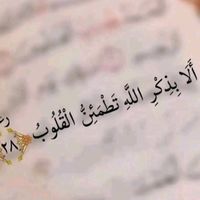 أَلَا بِذِكْرِ اللَّهِ تَطْمَئِنُّ الْقُلُوبُ ٢٨